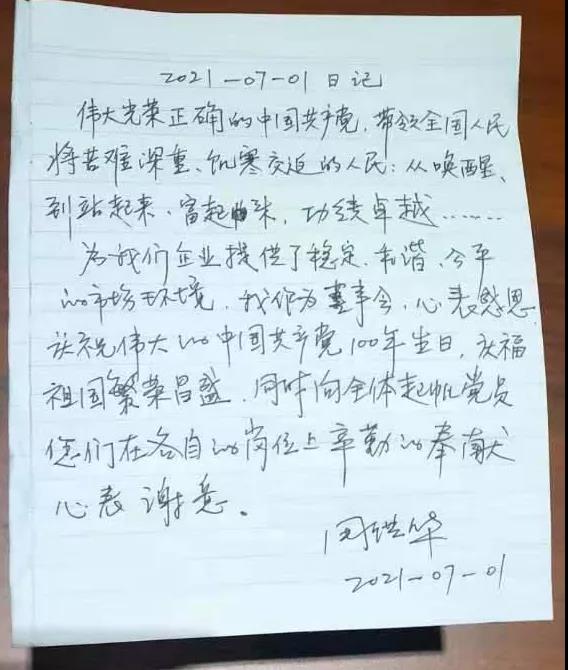 2021-07-01日记
伟大光荣正确的中国共产党,带领全国人民
将苦难深重、饥寒交迫的人民:从唤醒、
到站起来、富起来,功绩卓越……
为我们企业提供了稳定、和谐、公平
的市场环境,我作为董事会,心表感恩
庆祝伟大的中国共产党100年生日,庆福
祖国繁荣昌盛,同时向全体起帆党员
您们在各自的岗位上辛勤的奉献
心表谢意。
周
华
2021-07-01